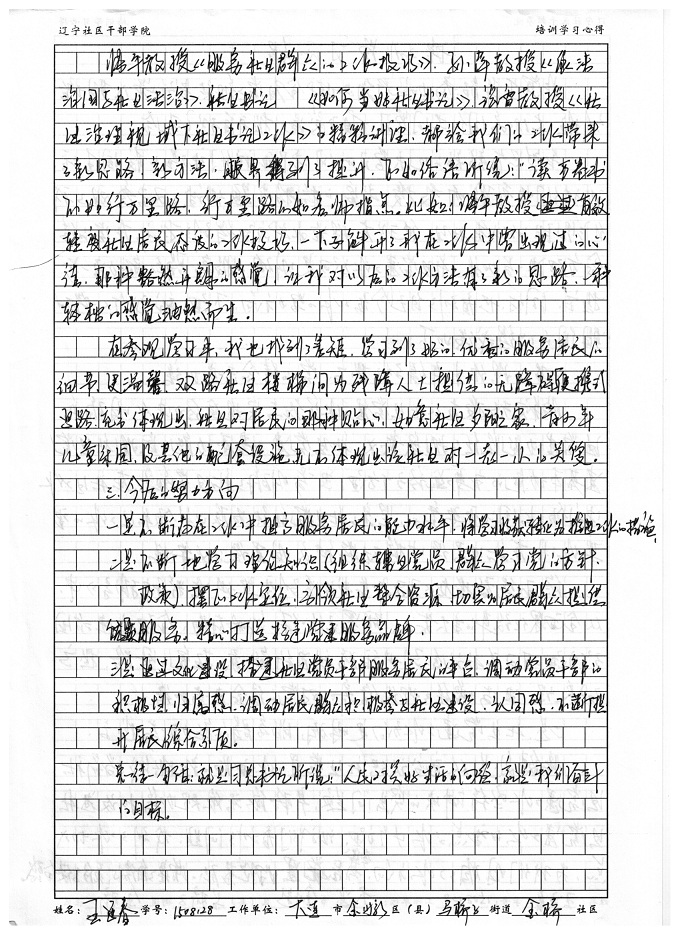 辽宁社区干部学院 培训学习心得
教授《服务社区群众的工作技巧》、教授《依法
治国与社区法治》、社区书记 《如何当好社区书记》、教授《社
区治理视域下社区书记工作》的精彩讲座,都给我们的工作带来
了新思路,新方法,眼界得到了提升,正如俗话所说:"读万卷书
不如行万里路,行万里路不如名师指点。比如:教授 有效
转变社区居民态度的工作技巧,一下子解开了我在工作中常出现过的心
结,那种豁然开朗的感觉,让我对以后的工作方法有了新的思路,一种
轻松的感觉油然而生。
在参观学习中,我也找到了差距,学习到了 优秀的服务居民的
细节,更温馨 双路社区楼梯间为残障人士提供的无障碍便携式
通路,充分体现出,社区对居民的那种贴心,
儿童乐园,及其他的配套设施充分体现出该社区对一老一小的关爱。
三、今后的努力方向
一是不断在工作中提高服务居民的能力水平,将学习收获转化为推进工作的措施。
二是不断地学习理论知识(组织辖区党员、群众学习党的方针、
政策)摆正工作定位,引领社区整合资源,切实为居民群众提供
服务,精心打造 党建服务品牌。
三是通过文化建设,搭建社区党员干部服务居民的平台,调动党员干部的
积极性,归属感,调动居民群众积极参与社区建设,认同感,不断提
升居民综合素质。
总结一句话:就是习总书记所说:"人民对美好生活的向往,就是我们奋斗
的目标。
姓名: 王 春 学号: 1508128 工作单位: 大连 市 金州新 区(县) 马桥子 街道 金桥 社区